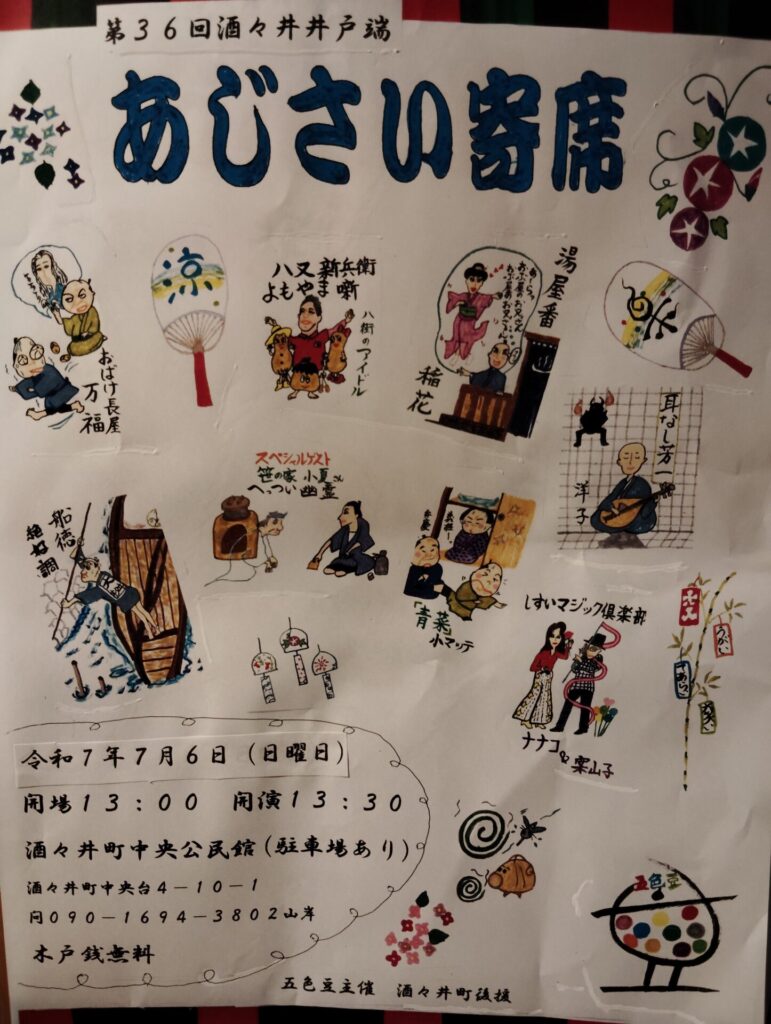 第36回酒々井井戸端
あじさい寄席
おばけ長屋
万福
涼
八又 新兵衛
よもやま噺
八街のアイドル
湯屋番
稲花
耳なし芳一
洋子
船徳
絶好調
スペシャルゲスト
笹の家 小夏さん
へっつい幽霊
「青菜」
小マッテ
しすいマジック倶楽部
ナナコ&案山子
令和7年7月6日(日曜日)
開場13:00 開演13:30
酒々井町中央公民館(駐車場あり)
酒々井町中央台4-10-1
問090-1694-3802山岸
木戸銭無料
五色豆
五色豆主催 酒々井町後援